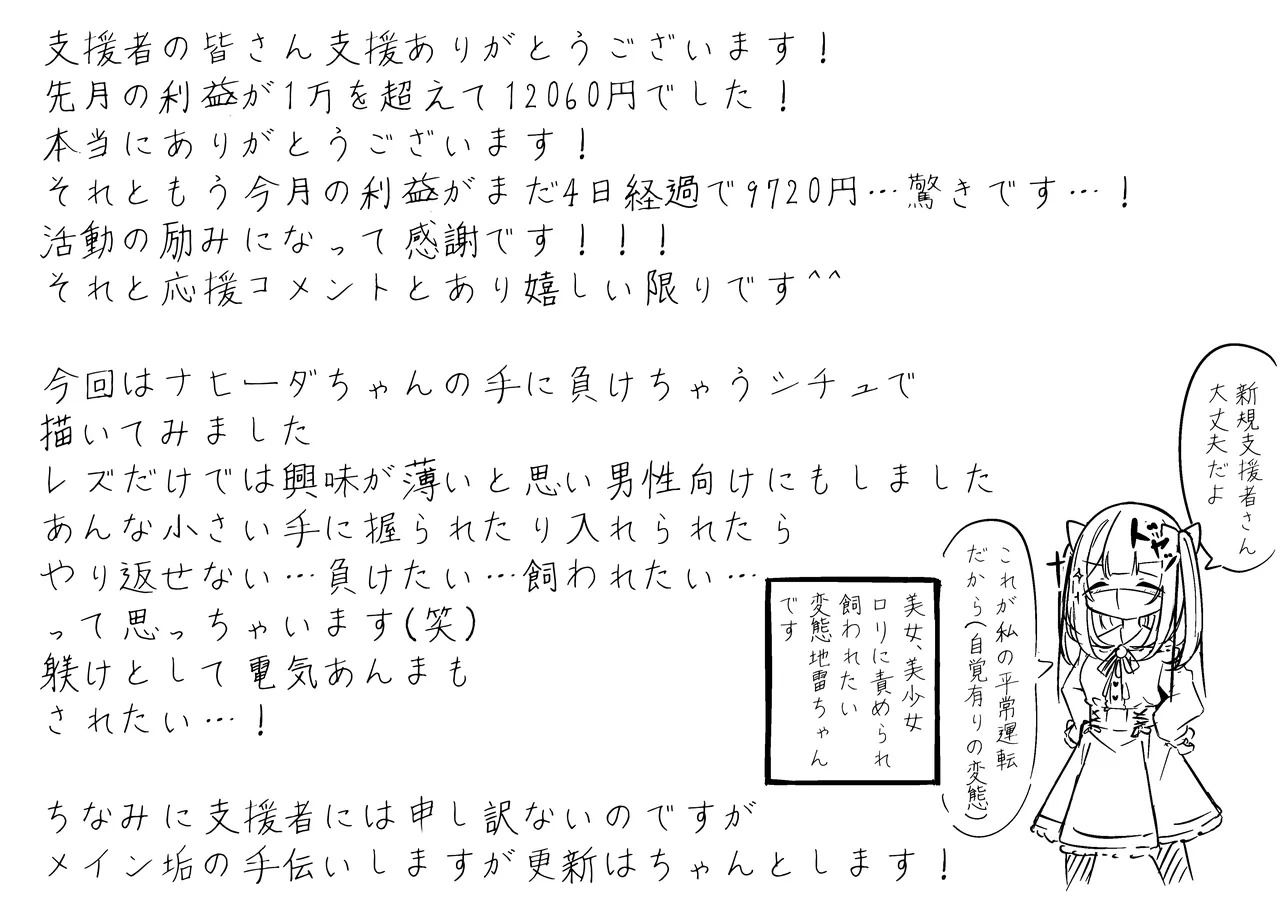 支援者の皆さん支援ありがとうございます！
先月の利益が1万を超えて12060円でした！
本当にありがとうございます！
それともう今月の利益がまだ4日経過で9720円…驚きです…！
活動の励みになって感謝です！！！
それと応援コメントとあり嬉しい限りです^^
今回はナヒーダちゃんの手に負けちゃうシチュで
描いてみました
レズだけでは興味が薄いと思い男性向けにもしました
あんな小さい手に握られたり入れられたら
やり返せない…負けたい…飼われたい…
って思っちゃいます(笑)
躾けとして電気あんまも
されたい…！
ちなみに支援者には申し訳ないのですが
メイン垢の手伝いしますが更新はちゃんとします！
新規支援者さん
大丈夫だよ
ドヤッ
これが私の平常運転
だから(自覚有りの変態)
美女、美少女
ロリに責められ
飼われたい
変態地雷ちゃん
です